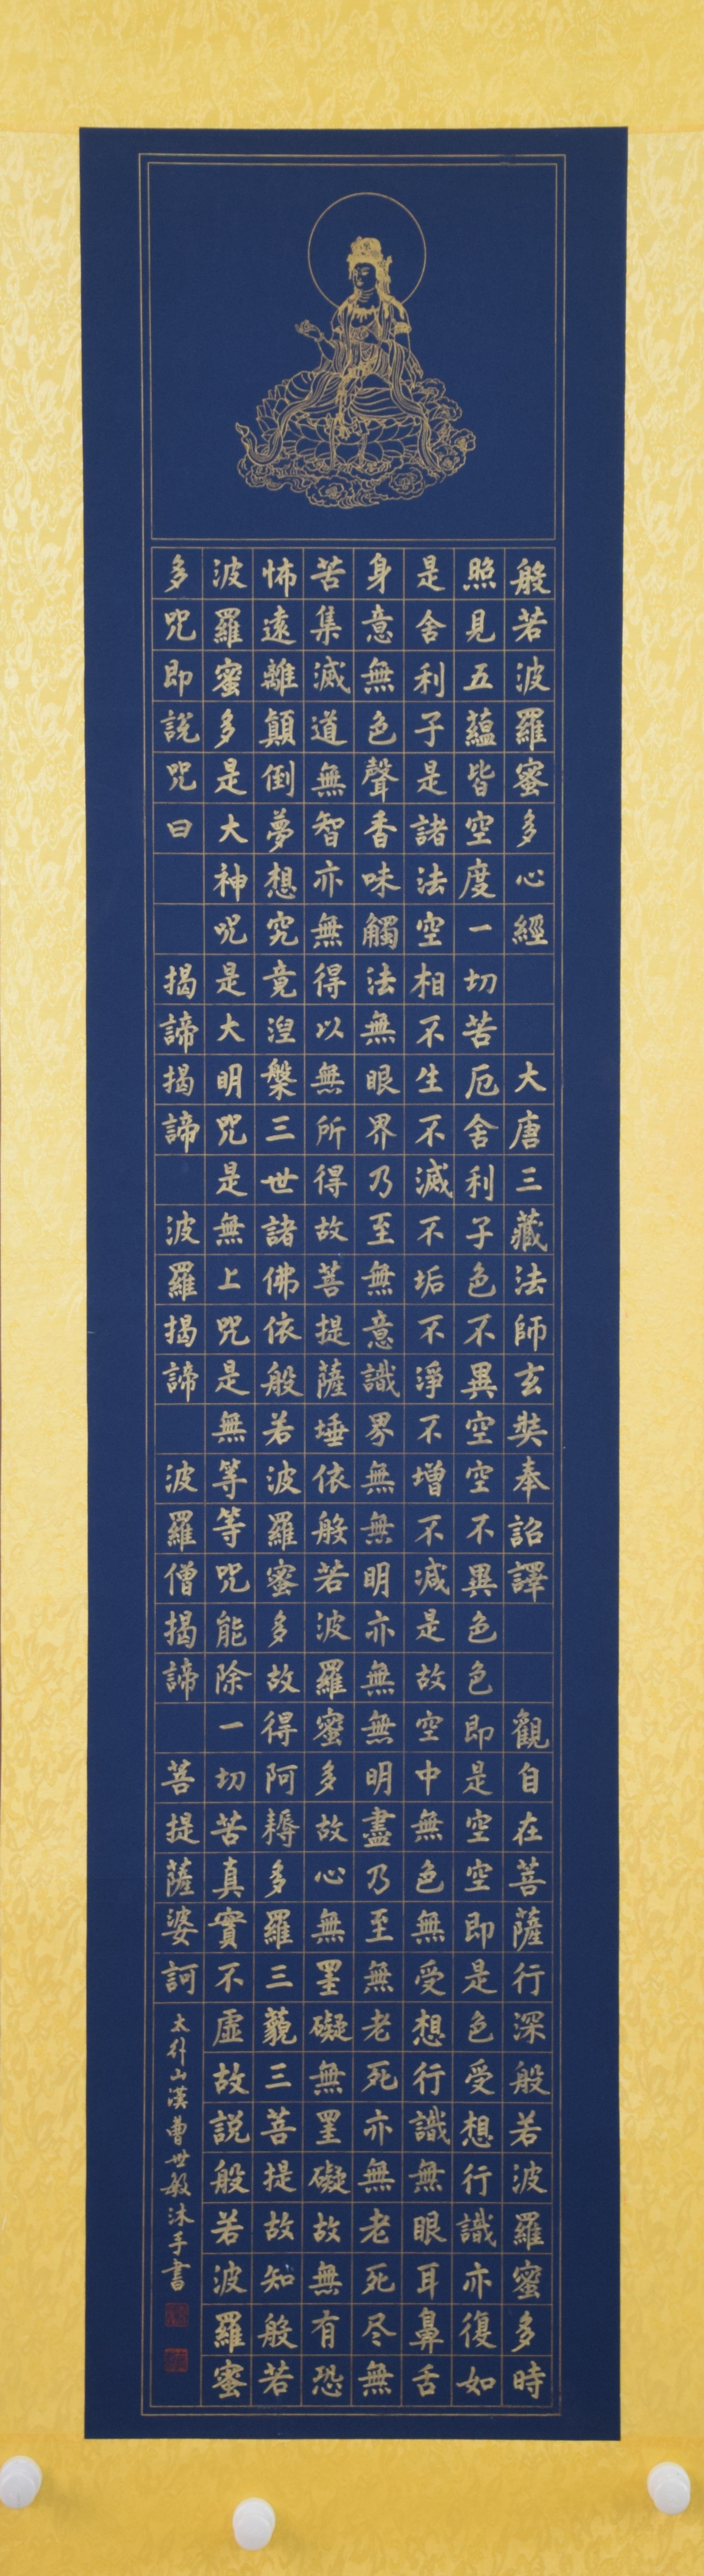 般若波羅蜜多心經 大唐三藏法師玄奘奉詔譯 觀自在菩薩行深般若波羅蜜多時
照見五蘊皆空度一切苦厄舍利子色不異空空不異色色即是空空即是色受想行識亦復如
是舍利子是諸法空相不生不滅不垢不淨不增不減是故空中無色無受想行識無眼耳鼻舌
身意無色聲香味觸法無眼界乃至無意識界無無明亦無無明盡乃至無老死亦無老死尽無
苦集滅道無智亦無得以無所得故菩提薩埵依般若波羅蜜多故心無罣礙無罣礙故無有恐
怖遠離顛倒夢想究竟湼槃三世諸佛依般若波羅蜜多故得阿耨多羅三藐三菩提故知般若
波羅蜜多是大神咒是大明咒是無上咒是無等等咒能除一切苦真實不虛故説般若波羅蜜
多咒即説咒曰 揭諦揭諦 波羅揭諦 波羅僧揭諦 菩提薩婆訶
太行山漢曹世敏沐手書